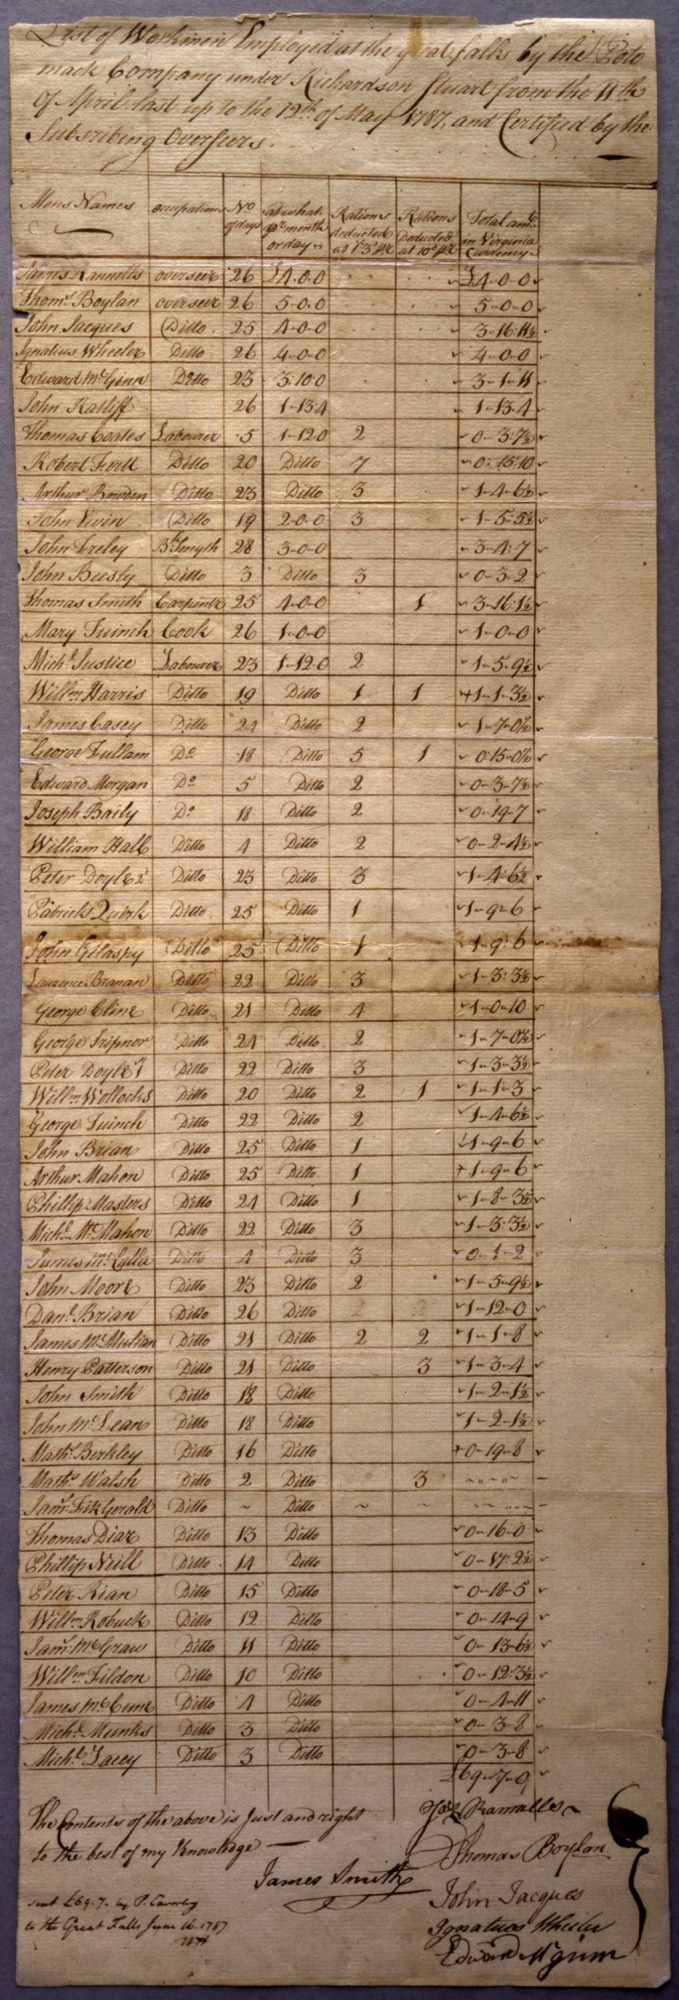 List of Workmen Employed at the great falls by the Poto
mack Company under Richardson Stuart from the 11th
of April last up to the 12th of May 1787, and Certified by the
Subscribing Overseers.
Mens Names occupations No of days at what pr month or day Rations deducted at 1/3d pr Rations Deducted at 10d pr Total amt in Virginia Currency
James Rannells overseer 26 £4-0-0 £4-0-0
Thoms Boylan overseer 26 5-0-0 5-0-0
John Jacques Ditto 25 4-0-0 3-16-11½
Ignatius Wheeler Ditto 26 4-0-0 4-0-0
Edward McGinn Ditto 23 3-10-0 3-1-11
John Ratliff 26 1-13-4 1-13-4
Thomas Coates Labourer 5 1-12-0 2 0-3-7½
Robert Ditto 20 Ditto 7 0-15-10
Arthur Bowden Ditto 23 Ditto 3 1-4-6½
John Ditto 19 2-0-0 3 1-5-5½
John Breley Bl Smyth 28 3-0-0 3-4-7
John Beesly Ditto 3 Ditto 3 0-3-2
Thomas Smith Carpenter 25 4-0-0 1 3-16-1½
Mary Cook 26 1-0-0 1-0-0
Michl Justice Labourer 23 1-12-0 2 1-5-9½
Willm Harris Ditto 19 Ditto 1 1 1-1-3½
James Casey Ditto 24 Ditto 2 1-7-0½
George Fullam Do 18 Ditto 5 1 0-15-0½
Edward Morgan Do 5 Ditto 2 0-3-7½
Joseph Baily Do 18 Ditto 2 0-19-7
William Hall Ditto 4 Ditto 2 0-2-4½
Peter Doyle 2d Ditto 23 Ditto 3 1-4-6½
Patrick Quirk Ditto 25 Ditto 1 1-9-6
John Gilaspy Ditto 25 Ditto 1 1-9-6
Laurence Branan Ditto 22 Ditto 3 1-3-3½
George Cline Ditto 21 Ditto 4 1-0-10
George Ditto 24 Ditto 2 1-7-0½
Peter Doyle 1 Ditto 22 Ditto 3 1-3-3½
Willm Ditto 20 Ditto 2 1 1-1-3
George Ditto 22 Ditto 2 1-4-6½
John Brian Ditto 25 Ditto 1 1-9-6
Arthur Mahon Ditto 25 Ditto 1 1-9-6
Phillip Masters Ditto 24 Ditto 1 1-8-3½
Michl McMahon Ditto 22 Ditto 3 1-3-3½
James Ditto 4 Ditto 3 0-1-2
John Moore Ditto 23 Ditto 2 1-5-9½
Danl Brian Ditto 26 Ditto 1-12-0
James McMulian Ditto 21 Ditto 2 2 1-1-8
Henry Patterson Ditto 21 Ditto 3 1-3-4
John Smith Ditto 18 Ditto 1-2-1½
John McLean Ditto 18 Ditto 1-2-1½
Mathw Berkley Ditto 16 Ditto 0-19-8
Mathw Walsh Ditto 2 Ditto 3
Jams Fitz Gerald Ditto ~ Ditto ~ ~
Thomas Diar Ditto 13 Ditto 0-16-0
Phillip Neill Ditto 14 Ditto 0-17-2½
Peter Rian Ditto 15 Ditto 0-18-5
Willm Robuck Ditto 12 Ditto 0-14-9
Jams McGraw Ditto 11 Ditto 0-13-6½
Willm Fildon Ditto 10 Ditto 0-12-3½
James McCune Ditto 4 Ditto 0-4-11
Michl Munks Ditto 3 Ditto 0-3-8
Michl Lacey Ditto 3 Ditto 0-3-8
£69-7-0
The Contents of the above is Just and right
to the best of my Knowledge
James Smith
Jas Rannells
Thomas Boylan
John Jacques
Ignatius Wheeler
Edward McGinn
sent £69.7. by P.
to the Great Falls June 16. 1787